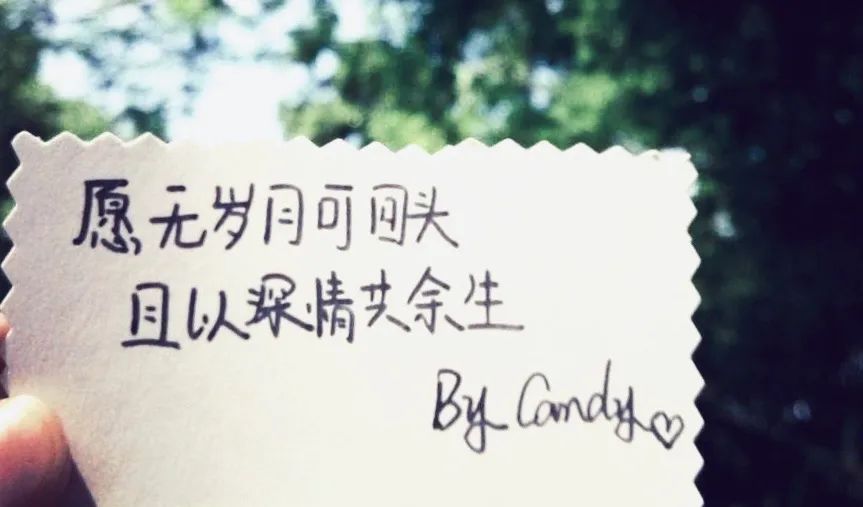 愿无岁月可回头
且以深情共余生
By Candy♡